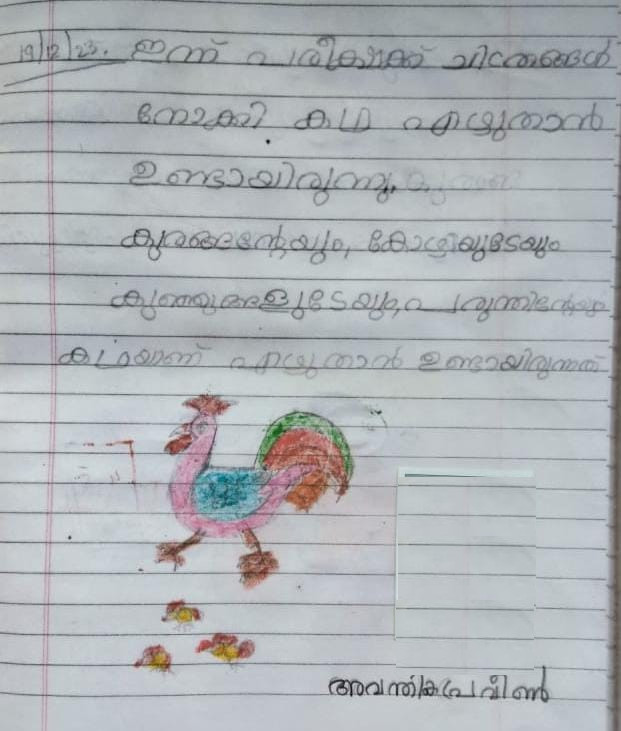 19/12/23. ഇന്ന് പരീക്ഷക്ക് ചിത്രങ്ങൾ
നോക്കി കഥ എഴുതാൻ
ഉണ്ടായിരുന്നു.
കുരങ്ങൻ്റേയും, കോഴിയുടേയും
കുഞ്ഞുങ്ങളുടേയും, പരുന്തിൻ്റേയും
കഥയാണ് എഴുതാൻ ഉണ്ടായിരുന്നത്
അവന്തിക പ്രവീൺ